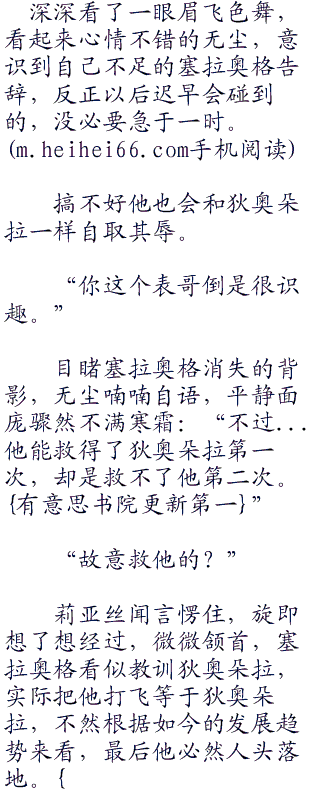 深深看了一眼眉飞色舞，
看起来心情不错的无尘，意
识到自己不足的塞拉奥格告
辞，反正以后迟早会碰到
的，没必要急于一时。
(m.heihei66.com手机阅读)
搞不好他也会和狄奥朵
拉一样自取其辱。
“你这个表哥倒是很识
趣。”
目睹塞拉奥格消失的背
影，无尘喃喃自语，平静面
庞骤然不满寒霜：“不过...
他能救得了狄奥朵拉第一
次，却是救不了他第二次。
{有意思书院更新第一}”
“故意救他的？”
莉亚丝闻言愣住，旋即
想了想经过，微微颔首，塞
拉奥格看似教训狄奥朵拉，
实际把他打飞等于狄奥朵
拉，不然根据如今的发展趋
势来看，最后他必然人头落
地。{